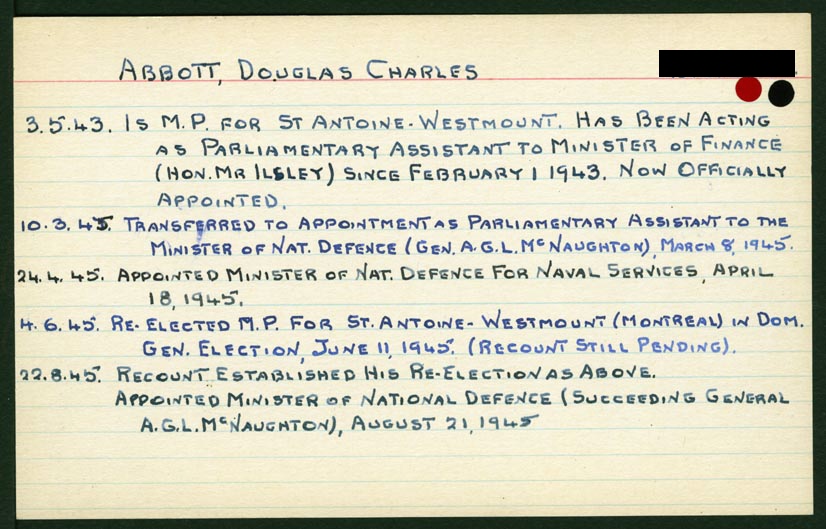 ABBOTT, DOUGLAS CHARLES
3.5.43. IS M.P. FOR ST ANTOINE-WESTMOUNT. HAS BEEN ACTING
AS PARLIAMENTARY ASSISTANT TO MINISTER OF FINANCE
(HON. MR ILSLEY) SINCE FEBRUARY 1 1943. NOW OFFICIALLY
APPOINTED.
10.3.45. TRANSFERRED TO APPOINTMENT AS PARLIAMENTARY ASSISTANT TO THE
MINISTER OF NAT. DEFENCE (GEN. A.G.L. McNAUGHTON), MARCH 8, 1945.
24.4.45. APPOINTED MINISTER OF NAT. DEFENCE FOR NAVAL SERVICES, APRIL
18, 1945.
4.6.45. RE-ELECTED M.P. FOR ST. ANTOINE-WESTMOUNT (MONTREAL) IN DOM.
GEN. ELECTION, JUNE 11, 1945. (RECOUNT STILL PENDING).
22.8.45. RECOUNT ESTABLISHED HIS RE-ELECTION AS ABOVE.
APPOINTED MINISTER OF NATIONAL DEFENCE (SUCCEEDING GENERAL
A.G.L. McNAUGHTON), AUGUST 21, 1945